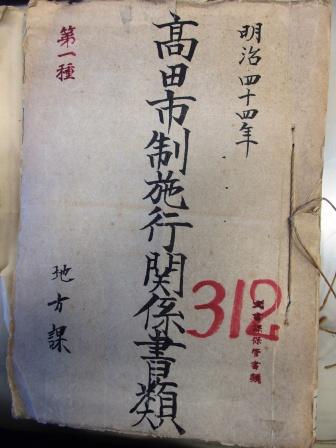 明治四十四年
髙田市制施行関係書類
第一種
地方課
312
文書課保管書類